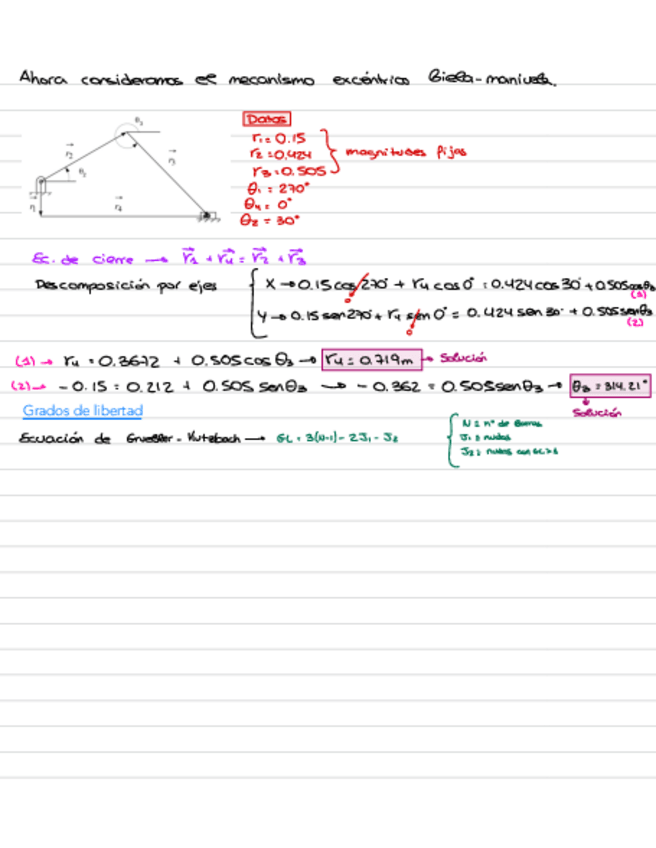 Ahora consideramos el mecanismo excéntrico Biela-manivela.
Datos
r₁ = 0.15
r₂ = 0.424
r₃ = 0.505
magnitudes fijas
θ₁ = 270°
θ₄ = 0°
θ₂ = 30°
Ec. de cierre → r⃗₁ + r⃗₄ = r⃗₂ + r⃗₃
Descomposición por ejes
X → 0.15 cos 270° + r₄ cos 0° = 0.424 cos 30° + 0.505 cos θ₃ (1)
Y → 0.15 sen 270° + r₄ sen 0° = 0.424 sen 30° + 0.505 sen θ₃ (2)
(1) → r₄ = 0.3672 + 0.505 cos θ₃ → r₄ = 0.719m → Solución
(2) → -0.15 = 0.212 + 0.505 sen θ₃ → -0.362 = 0.505 sen θ₃ → θ₃ = 314.21°
Solución
Grados de libertad
Ecuación de Gruebler - Kutzbach → GL = 3(N-1) - 2J₁ - J₂
N = nº de barras
J₁ = nudos
J₂ = nudos con GL>1